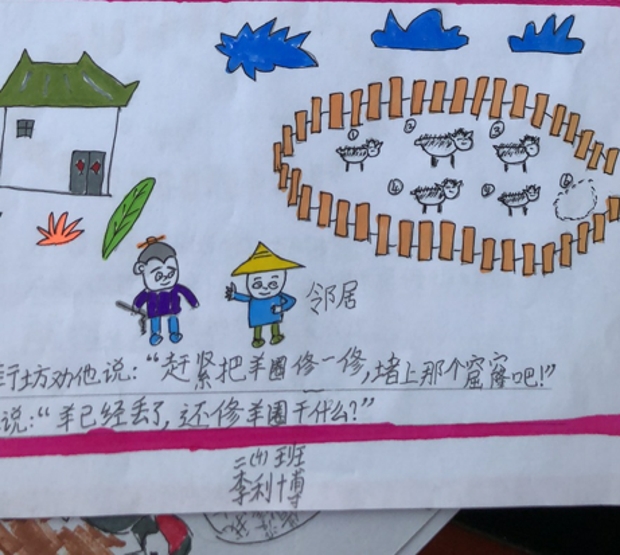 ① ② ③
④ ⑥
邻居
街坊劝他说:“赶紧把羊圈修一修,堵上那个窟窿吧!”
说:“羊已经丢了,还修羊圈干什么?”
二(4)班
李利博